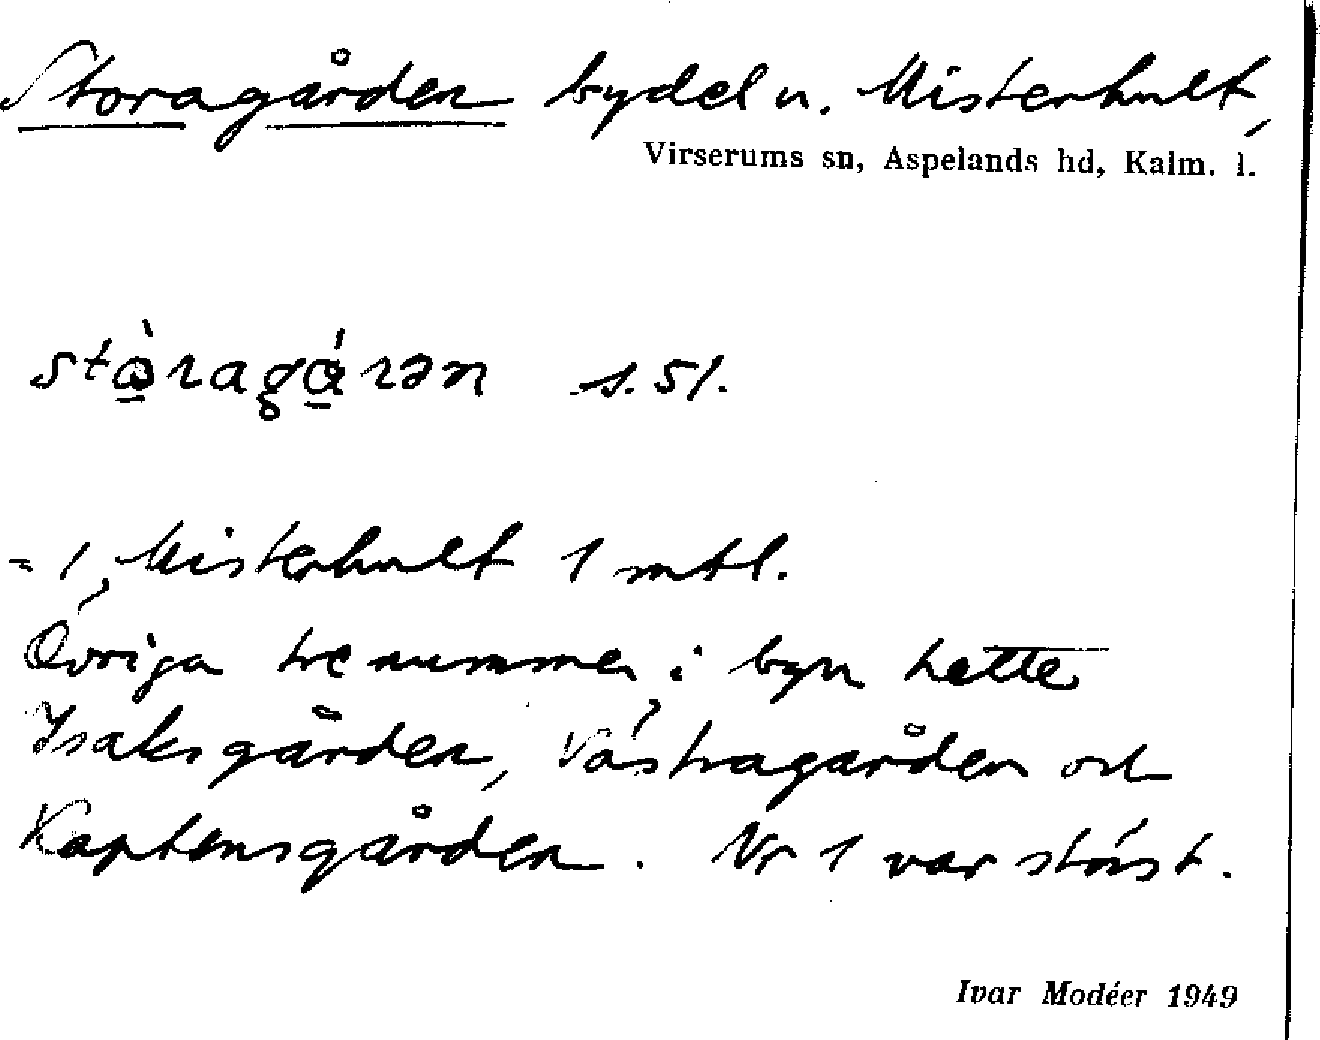 Storagården bydel u. Misterhult,
Virserums sn, Aspelands hd, Kalm. l.
stòragá̱rən s. 51.
= 1, Misterhult 1 mtl.
Övriga tre nummer i byn hette
Isaksgården, Västragården och
Kaptensgården. Nr 1 var störst.
Ivar Modéer 1949